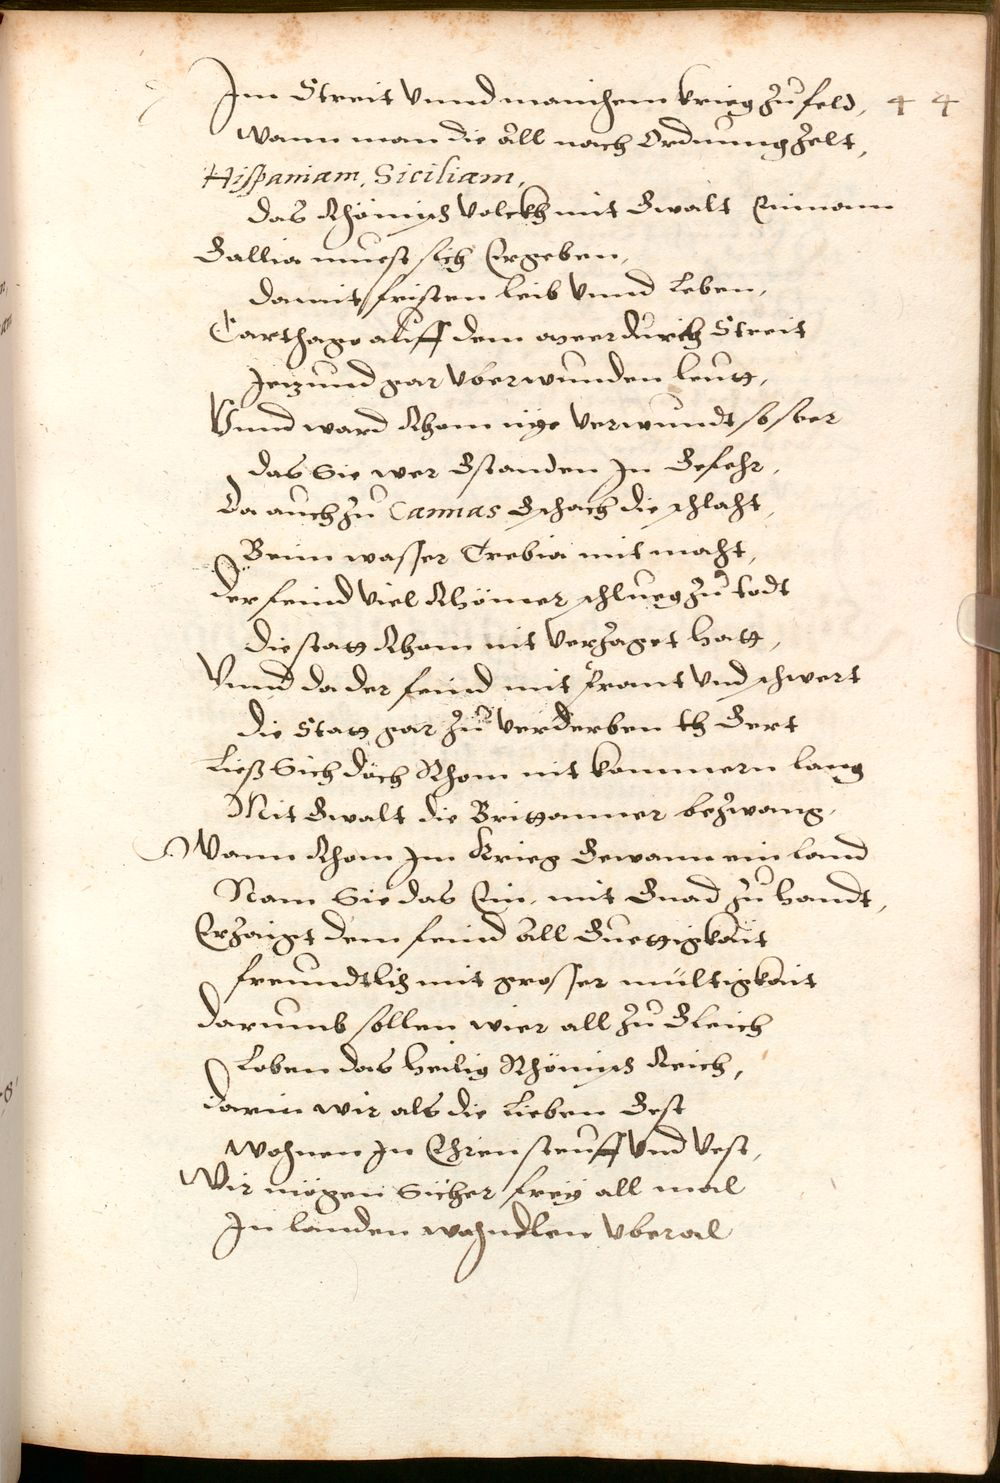 Im Streit Vnnd manichem krieg zu feld, 4 4
Wann man die all nach Ordnung zelt,
Hispaniam, Siciliam,
Das Rhömisch Volckh mit Gwalt Einnam
Gallia muest sich Ergeben,
Damit fristen leib Vnnd Leben,
Carthago auff dem meer durch Streit
Jezund gar Vberwunden leutt,
Vnnd ward Rhom nye Verwundt so seer
Das Sie wer Gstanden In Gefehr,
Da auch zu Cannas Gschach die schlacht,
Beim wasser Trebia mit macht,
Der feind Viel Rhömer schlueg zu todt
Die statt Rhom nit Verzaget hatt,
Vnnd da der feind mit Prant Vnd schwert
Die Statt gar zu Verderben th Gert
Ließ Sich doch Rhom nit kommern lang
Mit Gwalt die Brittannier bezwang,
Wann Rhom Im Krieg Gewann ein land
Nam Sie das Ein, mit Gnad zu handt,
Erzaigt dem feind all Guettigkait
freundtlich mit grosser miltigkait
Darumb sollen wier all zu Gleich
Loben das heilig Rhömisch Reich,
Darin wir als die Lieben Gest
Wohnen In Ehren steuff Vnd Vest,
Wir mögen Sicher frey all mal
In landen wahndlen Vberal